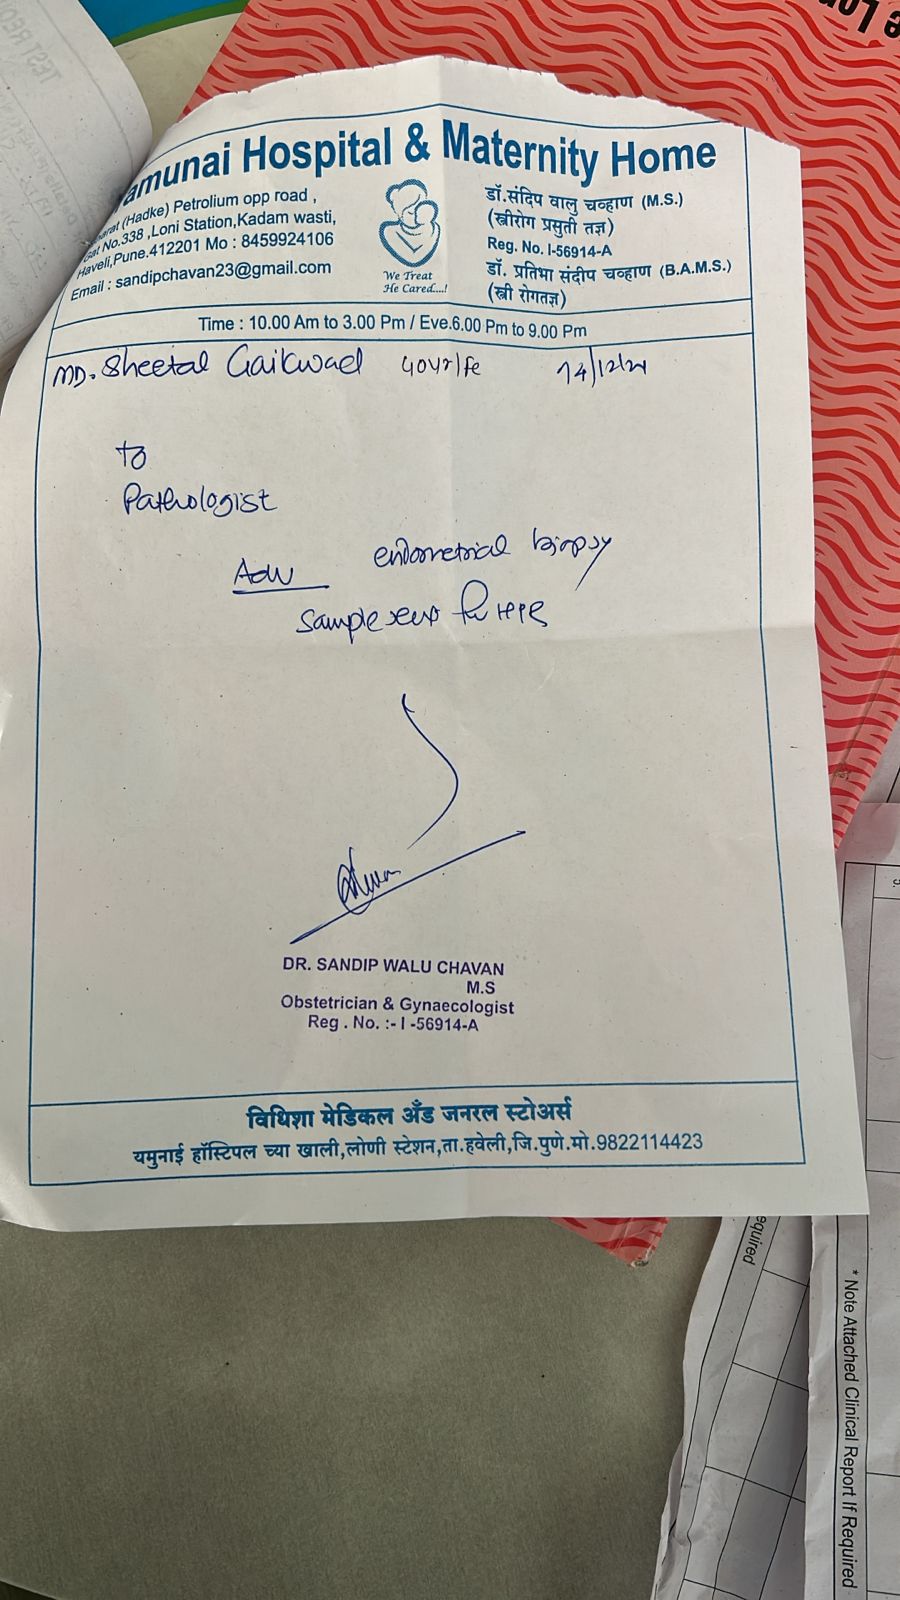 amunai Hospital & Maternity Home
(Hadke) Petrolium opp road ,
No.338 ,Loni Station,Kadam wasti,
Haveli,Pune.412201 Mo : 8459924106
Email : sandipchavan23@gmail.com
We Treat
He Cared....!
डॉ.संदिप वालु चव्हाण (M.S.)
(स्त्रीरोग प्रसुती तज्ञ)
Reg. No. I-56914-A
डॉ. प्रतिभा संदीप चव्हाण (B.A.M.S.)
(स्त्री रोगतज्ञ)
Time : 10.00 Am to 3.00 Pm / Eve.6.00 Pm to 9.00 Pm
Sheetal Gaikwad 40yr/fe
To
Pathologist
Adv endometrial biopsy
sample sent for HPE
DR. SANDIP WALU CHAVAN
M.S
Obstetrician & Gynaecologist
Reg . No. :- I -56914-A
विधिशा मेडिकल अँड जनरल स्टोअर्स
यमुनाई हॉस्टिपल च्या खाली,लोणी स्टेशन,ता.हवेली,जि.पुणे.मो.9822114423
* Note Attached Clinical Report If Required